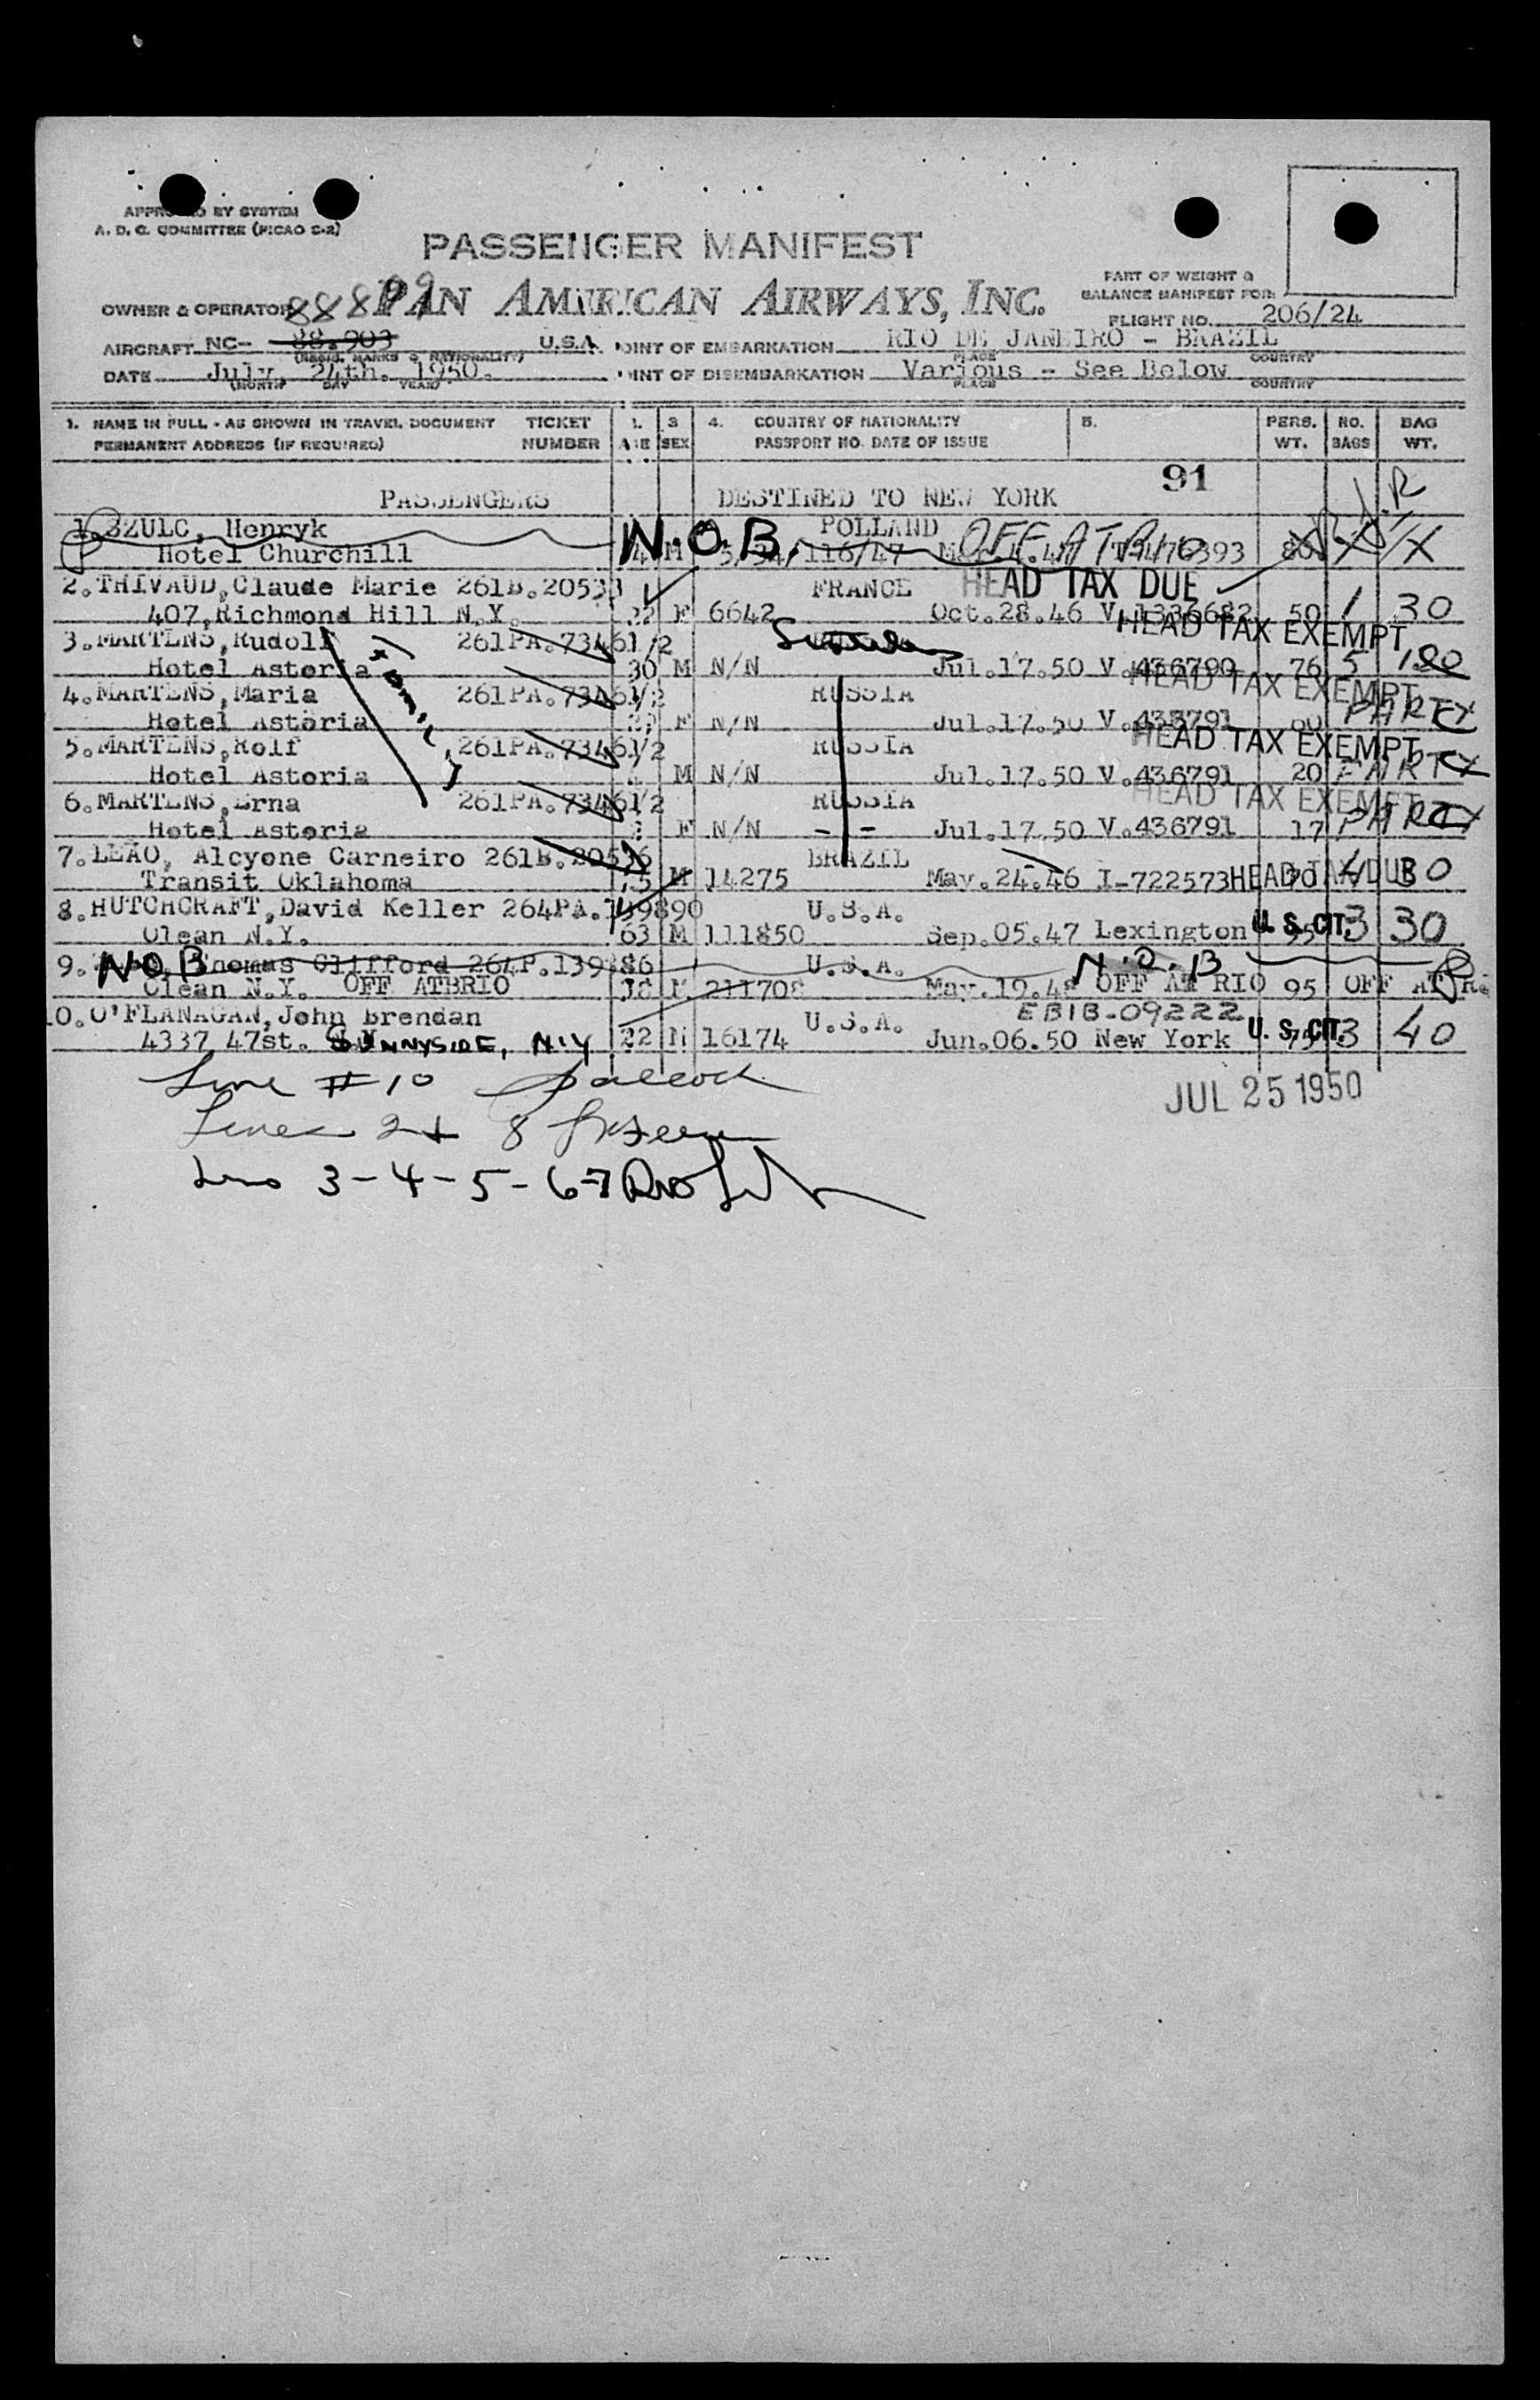 APPROVED BY SYSTEM
A. D. C. COMMITTEE (PICAO C-2)
PASSENGER MANIFEST
PART OF WEIGHT &
BALANCE MANIFEST FOR:
OWNER & OPERATOR 88899 PAN AMERICAN AIRWAYS, INC.
FLIGHT NO. 206/24
AIRCRAFT NC- 88.903 U.S.A. POINT OF EMBARKATION RIO DE JANEIRO - BRAZIL
(REGIS. MARKS & NATIONALITY) PLACE COUNTRY
DATE July 24th. 1950. POINT OF DISEMBARKATION Various - See Below
MONTH DAY YEAR PLACE COUNTRY
1. NAME IN FULL - AS SHOWN IN TRAVEL DOCUMENT TICKET 3 4. COUNTRY OF NATIONALITY 5. PERS. NO. BAG
PERMANENT ADDRESS (IF REQUIRED) NUMBER AGE SEX PASSPORT NO. DATE OF ISSUE WT. BAGS WT.
91
PASSENGERS DESTINED TO NEW YORK
1. SZULC, Henryk N.O.B. POLLAND OFF AT RIO
Hotel Churchill M 116/47
2. THIVAUD, Claude Marie 261B. FRANCE HEAD TAX DUE
407, Richmond Hill N.Y. 22 F 6642 Oct.28.46 V.1336682 50 1 30
3. MARTENS, Rudolf 261PA.73461/2 HEAD TAX EXEMPT
Hotel Astoria 30 M N/N Jul.17.50 V.436790 76 5
4. MARTENS, Maria 261PA.73461/2 RUSSIA HEAD TAX EXEMPT
Hotel Astoria F N/N Jul.17.50 V. PARTY
5. MARTENS, Rolf 261PA.73461/2 RUSSIA HEAD TAX EXEMPT
Hotel Astoria M N/N Jul.17.50 V.436791 20 PARTY
6. MARTENS, Erna 261PA.73461/2 RUSSIA HEAD TAX EXEMPT
Hotel Astoria F N/N - - Jul.17.50 V.436791 17 PARTY
family
7. LEAO, Alcyone Carneiro 261B. BRAZIL
Transit Oklahoma M 14275 May.24.46 I-722573 HEAD TAX DUE
8. HUTCHCRAFT, David Keller 264PA.139890 U.S.A.
Olean N.Y. 63 M 111850 Sep.05.47 Lexington U. S. CIT. 95 3 30
9. N.O.B. Thomas Clifford U.S.A. N.O.B
Olean N.Y. OFF ATBRIO May.19.48 OFF AT RIO 95 OFF AT
10. O'FLANAGAN, John Brendan U.S.A. EBIB-09222
4337 47st. SUNNYSIDE, N.Y 22 M 16174 Jun.06.50 New York U. S. CIT. 3 40
Line #10
JUL 25 1950
Lines 2 + 8
3-4-5-6-7